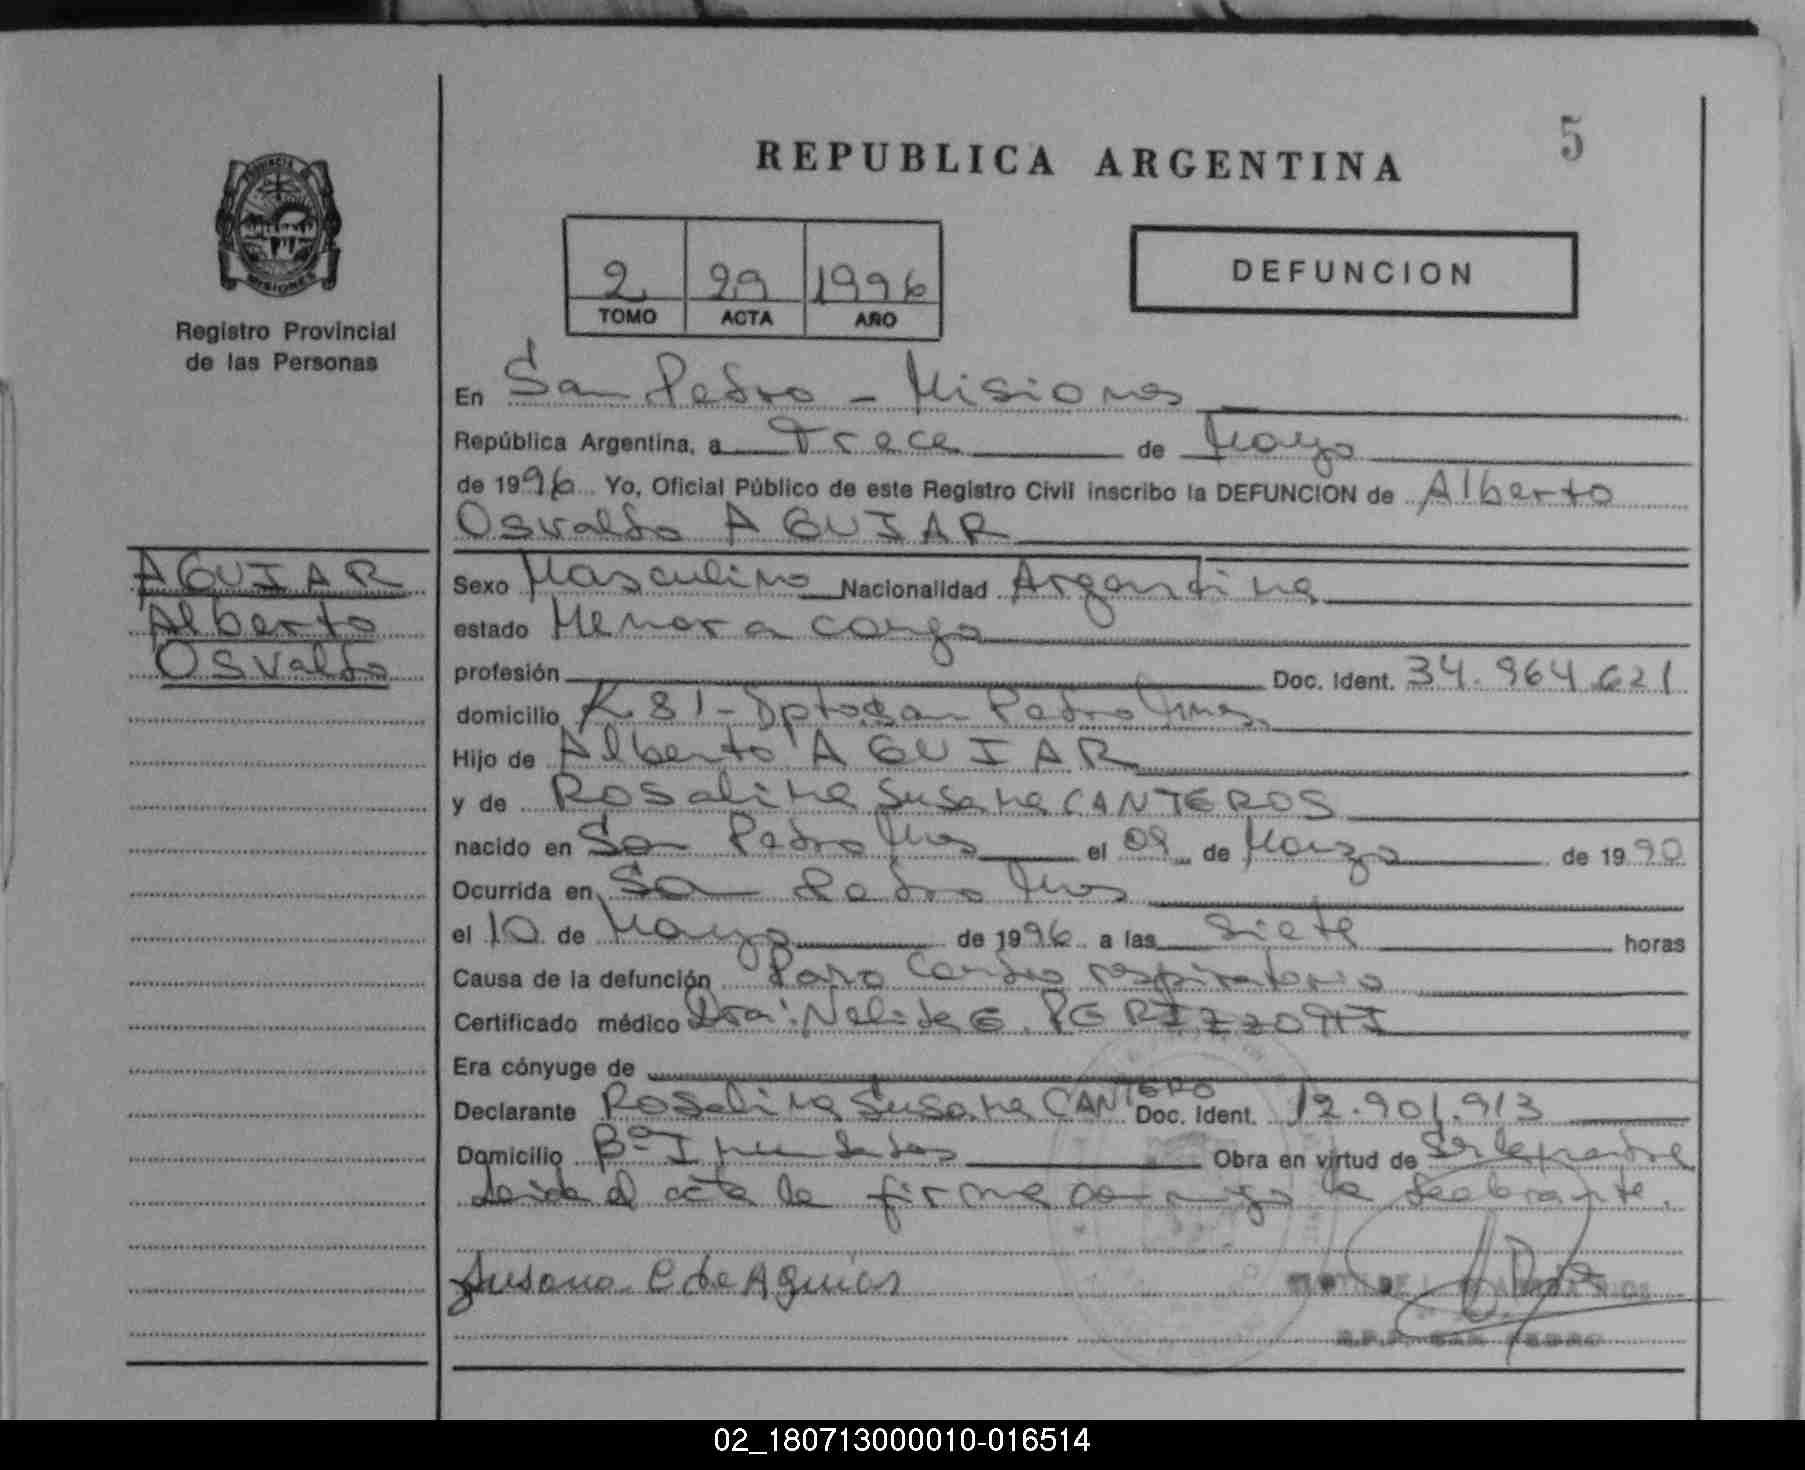 5
REPUBLICA ARGENTINA
PROVINCIA DE
MISIONES
Registro Provincial
de las Personas
2 29 1996
TOMO ACTA AÑO
DEFUNCION
En San Pedro - Misiones
República Argentina, a Trece de Mayo
de 1996 Yo, Oficial Público de este Registro Civil inscribo la DEFUNCION de Alberto
Osvaldo AGUIAR
AGUIAR
Alberto
Osvaldo
Sexo Masculino Nacionalidad Argentina
estado Menor a cargo
profesión Doc. Ident. 34.964.621
domicilio K 81 - Dpto San Pedro Mnes.
Hijo de Alberto AGUIAR
y de Rosalina Susana CANTEROS
nacido en San Pedro Mnes el 09 de Marzo de 1990
Ocurrida en San Pedro Mnes
el 10 de Mayo de 1996 a las Siete horas
Causa de la defunción Paro Cardio respiratorio
Certificado médico Dra: Nelida G. PERIZZOTTI
Era cónyuge de
Declarante Rosalina Susana CANTERO Doc. Ident. 12.901.913
Domicilio Bº Inundados Obra en virtud de Ser la madre
Leida el acta la firma conmigo la declarante.
Susana C de Aguiar
R.P.P. SAN PEDRO
02_180713000010-016514